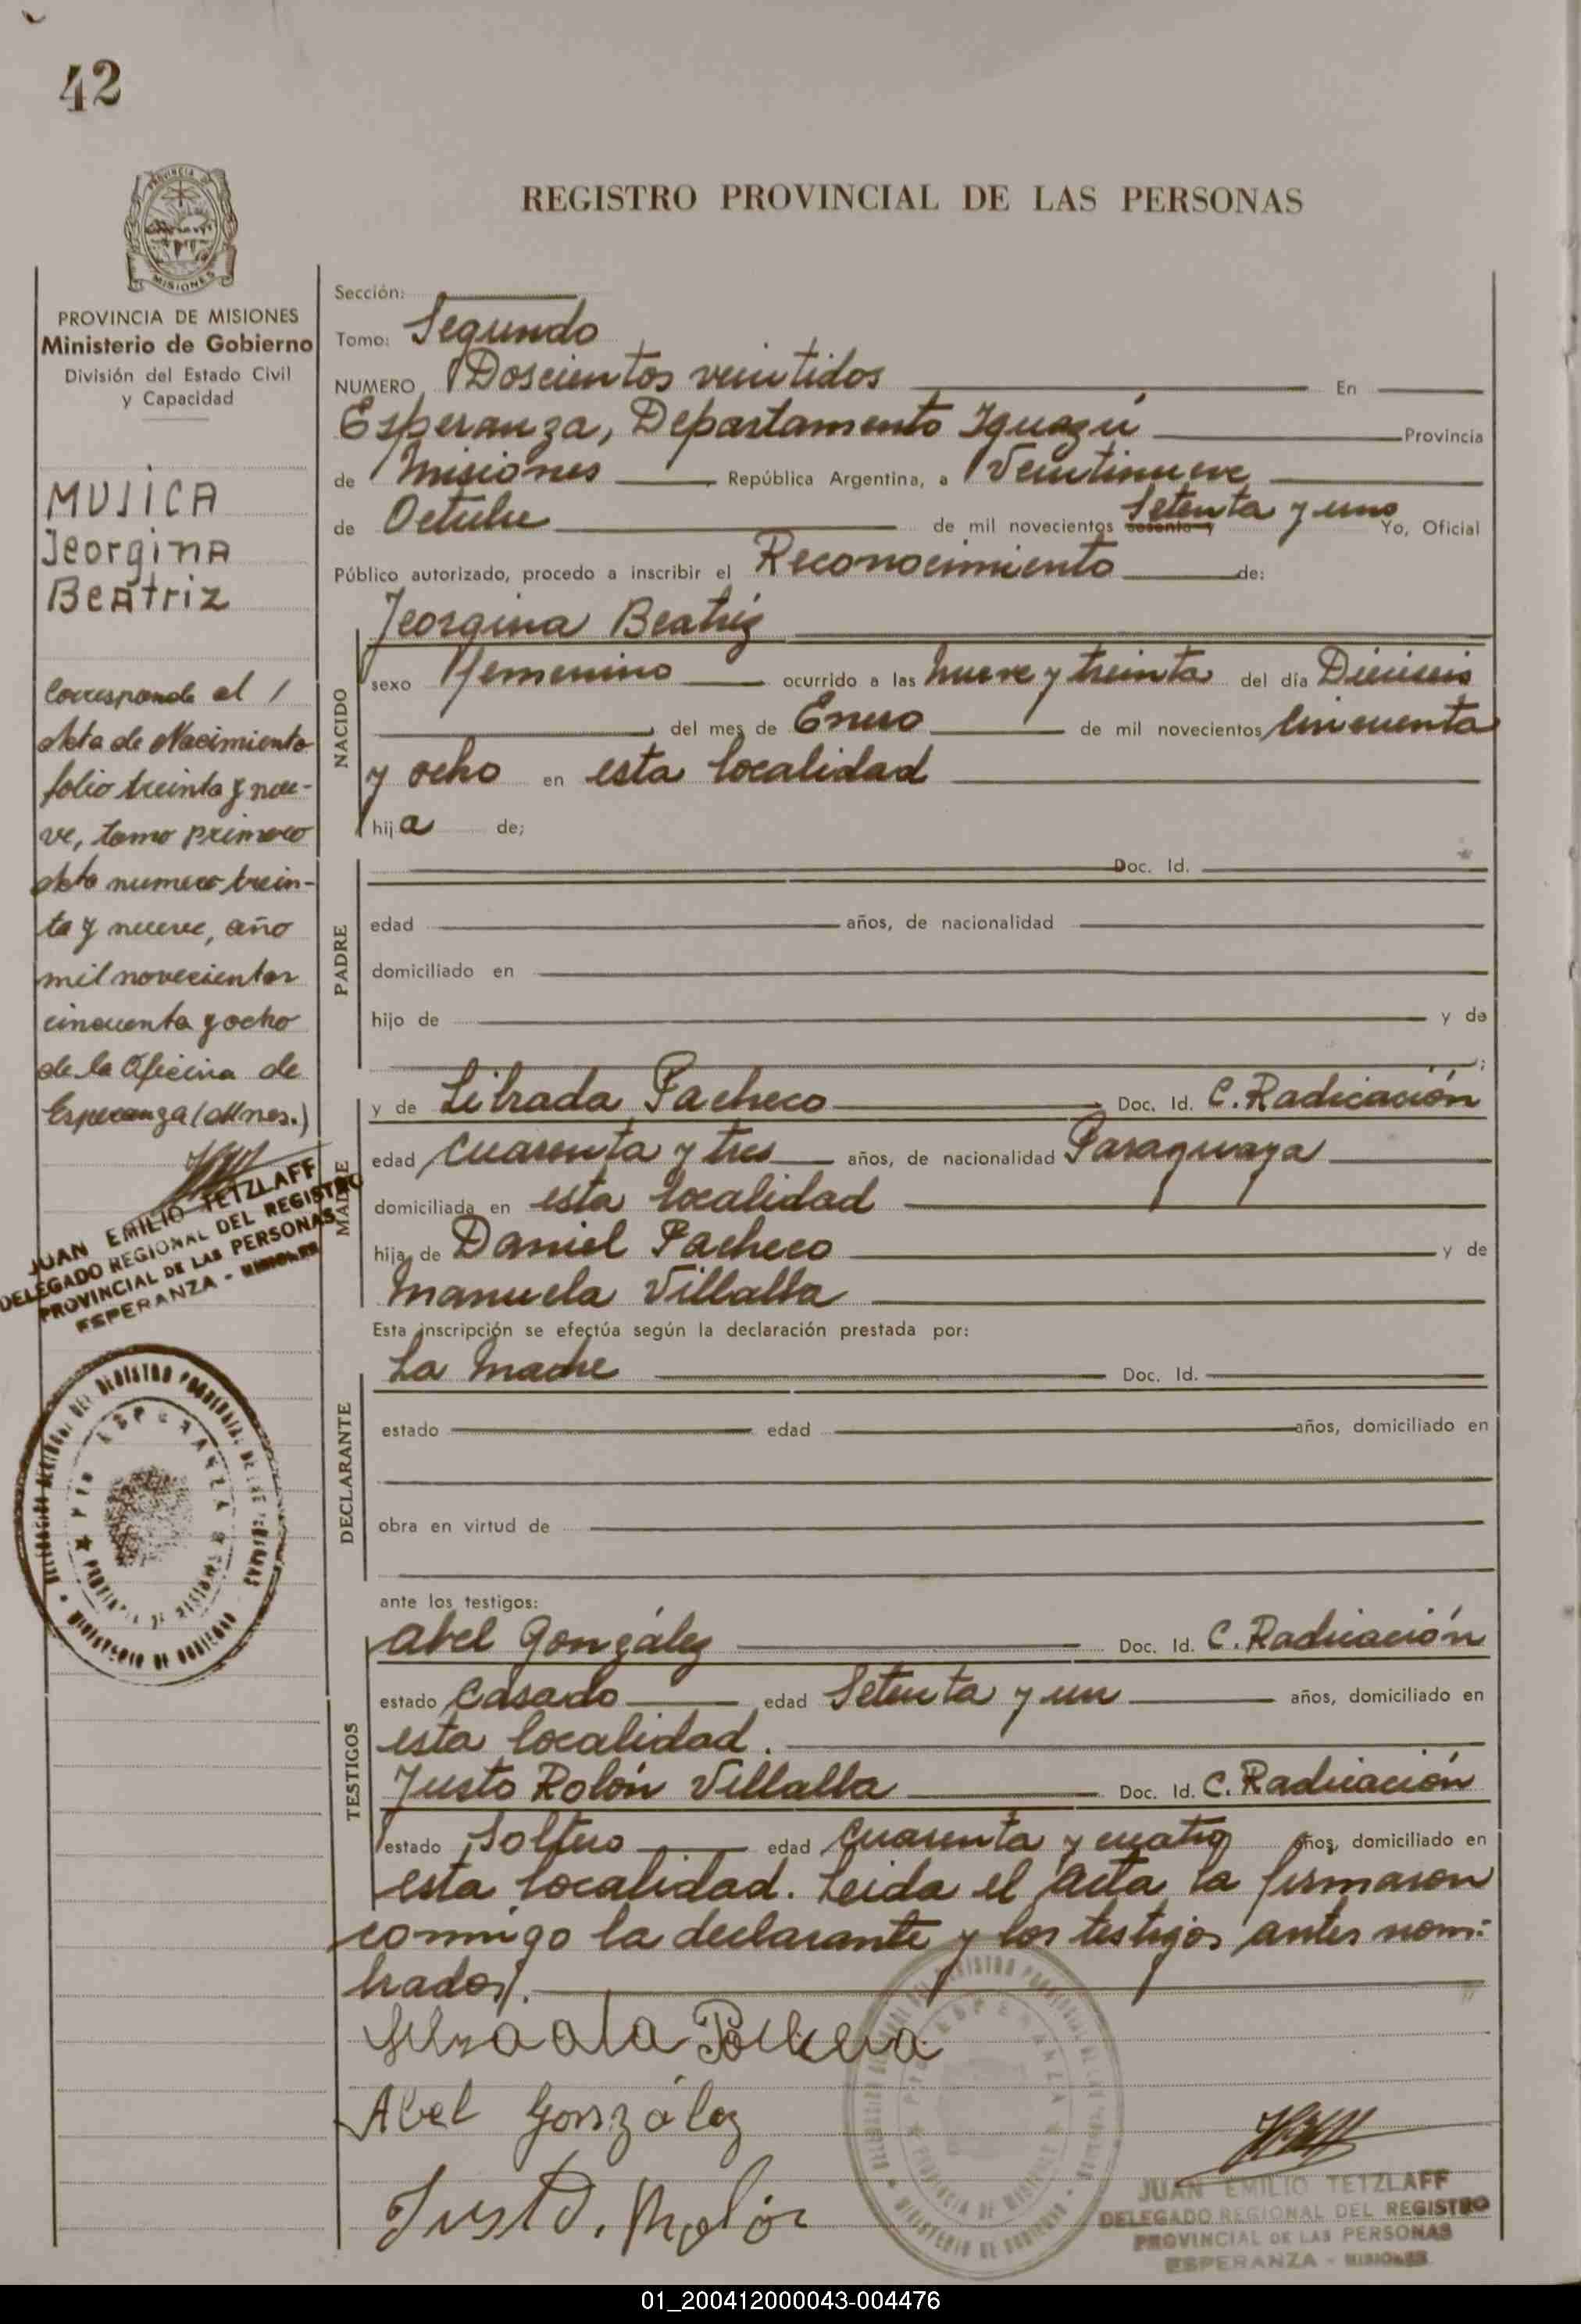 42
REGISTRO PROVINCIAL DE LAS PERSONAS
PROVINCIA DE
MISIONES
PROVINCIA DE MISIONES
Ministerio de Gobierno
División del Estado Civil
y Capacidad
MUJICA
Jeorgina
Beatriz
Corresponde al
Acta de Nacimiento
folio treinta y nue-
ve, tomo primero
Acta numero trein-
ta y nueve, año
mil novecientos
cincuenta y ocho
de la Oficina de
Esperanza (Mnes.)
JUAN EMILIO TETZLAFF
DELEGADO REGIONAL DEL REGISTRO
PROVINCIAL DE LAS PERSONAS
ESPERANZA - MISIONES
Sección:
Tomo: Segundo
NUMERO Doscientos veintidos En
Esperanza, Departamento Iguazú Provincia
de Misiones República Argentina, a Veintinueve
de Octubre de mil novecientos sesenta y Setenta y uno Yo, Oficial
Público autorizado, procedo a inscribir el Reconocimiento de:
Jeorgina Beatriz
NACIDO
sexo femenino ocurrido a las nueve y treinta del día Dieciseis
del mes de Enero de mil novecientos Cincuenta
y ocho en esta localidad
hija de;
PADRE
Doc. Id.
edad años, de nacionalidad
domiciliado en
hijo de y de
;
MADRE
y de Librada Pacheco Doc. Id. C. Radicación
edad cuarenta y tres años, de nacionalidad Paraguaya
domiciliada en esta localidad
hija de Daniel Pacheco y de
Manuela Villalba
Esta inscripción se efectúa según la declaración prestada por:
DECLARANTE
La Madre Doc. Id.
estado edad años, domiciliado en
obra en virtud de
ante los testigos:
TESTIGOS
Abel González Doc. Id. C. Radicación
estado Casado edad Setenta y un años, domiciliado en
esta localidad.
Justo Rolón Villalba Doc. Id. C. Radicación
estado Soltero edad Cuarenta y cuatro años, domiciliado en
esta localidad. Leida el acta la firmaron
conmigo la declarante y los testigos antes nom-
brados.
Abel González
Justo. Rolón
JUAN EMILIO TETZLAFF
DELEGADO REGIONAL DEL REGISTRO
PROVINCIAL DE LAS PERSONAS
ESPERANZA - MISIONES
01_200412000043-004476